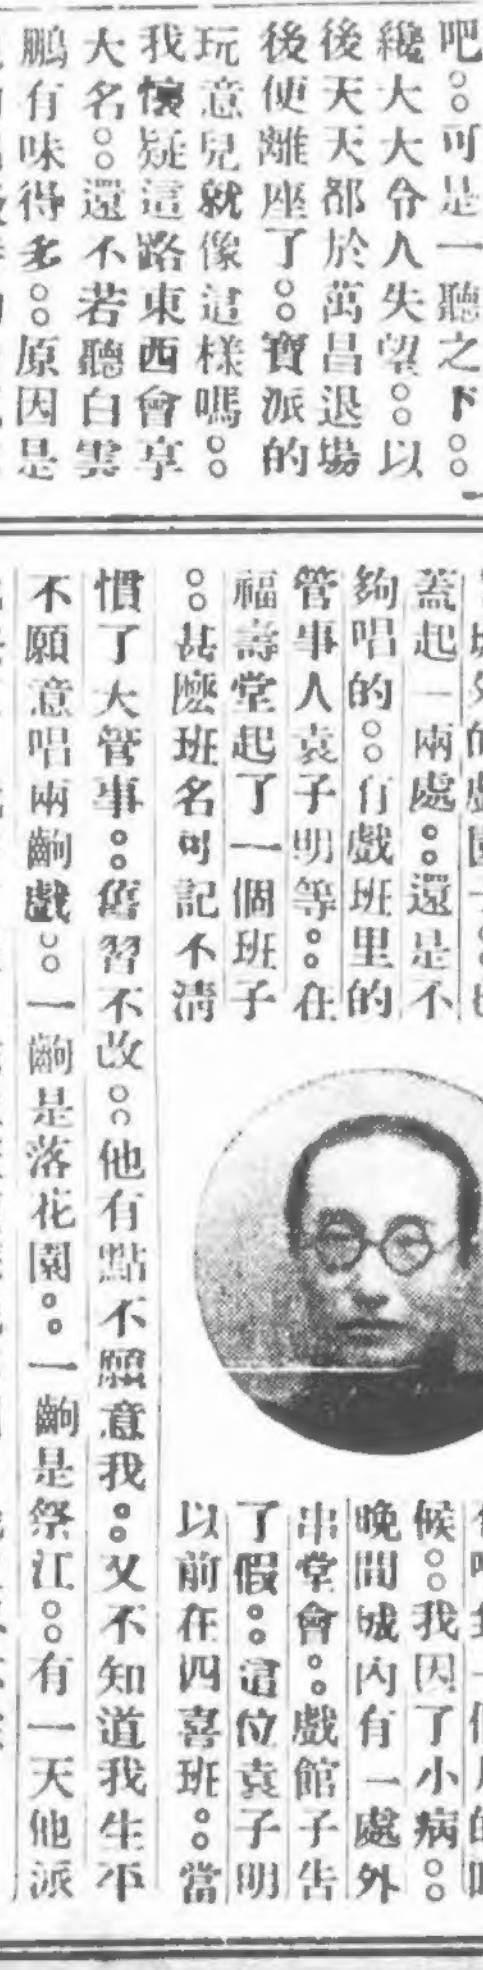 吧。。可是一聽之下。。
纔大大令人失望。。以
後天天都於萬昌退場
後便離座了。。寶派的
玩意兒就像這樣嗎。。
我懷疑這路東西會享
大名。。還不若聽白雲
鵬有味得多。。原因是
蓋起一兩處。。還是不
夠唱的。。有戲班里的
管事人袁子明等。。在
福壽堂起了一個班子
。。甚麼班名可記不清
候。。我因了小病。。
晚間城內有一處外
串堂會。。戲館子告
了假。。這位袁子明
以前在四喜班。。當
慣了大管事。。舊習不改。。他有點不願意我。。又不知道我生平
不願意唱兩齣戲。。一齣是落花園。。一齣是祭江。。有一天他派